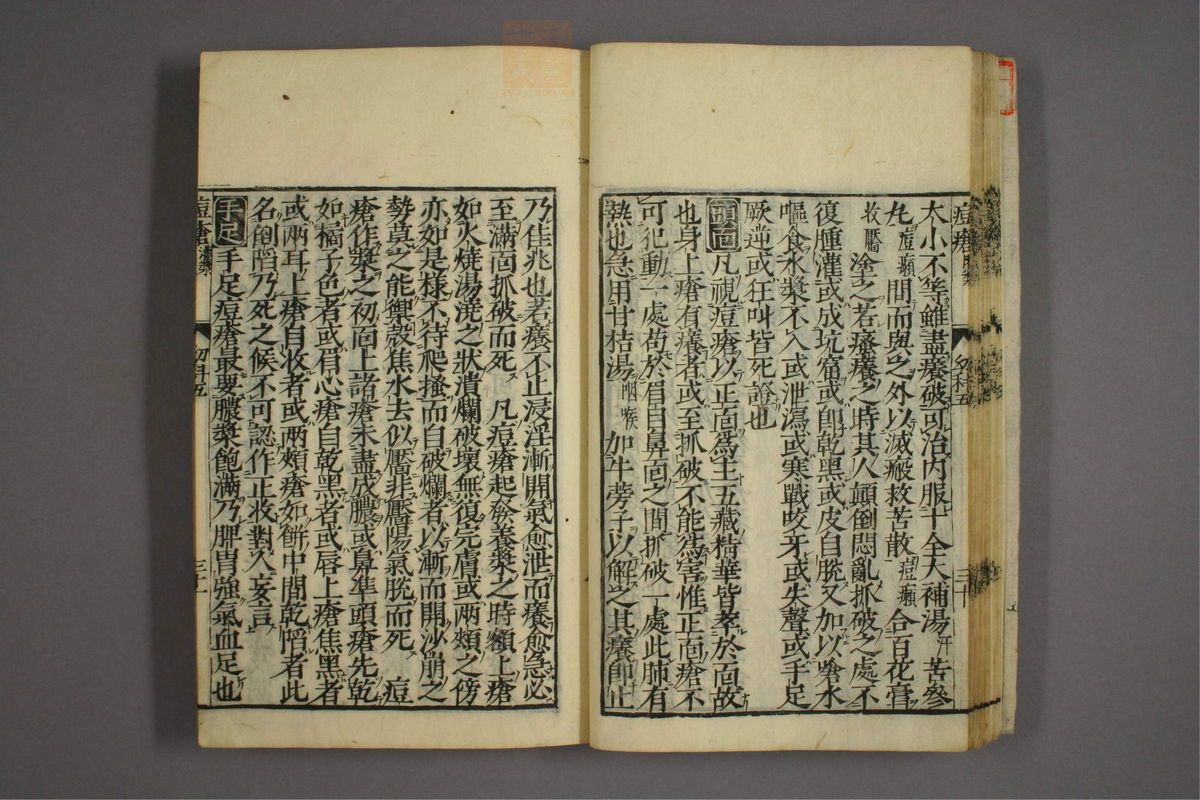 太小不等雖盡癢破可治内服十全大補湯汗苦參
丸痘癩間而與之外以滅瘢救苦散痘癩合百花膏
收靨塗之若瘙癢之時其人顛倒悶亂抓破之處不
復腫灌或成坑窟或卽乾黑或皮自脫又加以嗆水
嘔食水漿不入或泄瀉或寒戰咬牙或失聲或手足
厥逆或狂叫皆死證也
頭面凡視痘瘡以正面爲主五藏精華皆萃於面故
也身上瘡有癢者或至抓破不能爲害惟正面瘡不
可犯動一處苟於眉目鼻面之間抓破一處此肺有
熱也急用甘桔湯咽喉加牛蒡子以解之其癢卽止
乃佳兆也若癢不止浸淫漸開氣愈泄而癢愈急必
至滿面抓破而死 凡痘瘡起發養漿之時額上瘡
如火燒湯澆之狀潰爛破壞無復完膚或兩頰之傍
亦如是樣不待爬搔而自破爛者以漸而開沙崩之
勢莫之能禦殼焦水去似靨非靨陽氣脫而死 痘
瘡作漿之初面上諸瘡未盡成膿或鼻準頭瘡先乾
如橘子色者或眉心瘡自乾黑者或唇上瘡焦黑者
或兩耳上瘡自收者或兩頰瘡如餅中間乾惛者此
名倒陷乃死之候不可認作正收對人妄言
手足手足痘瘡最要膿漿飽滿乃脾胃強氣血足也
痘瘡 幼科五 三十
痘瘡 幼科五 三十一